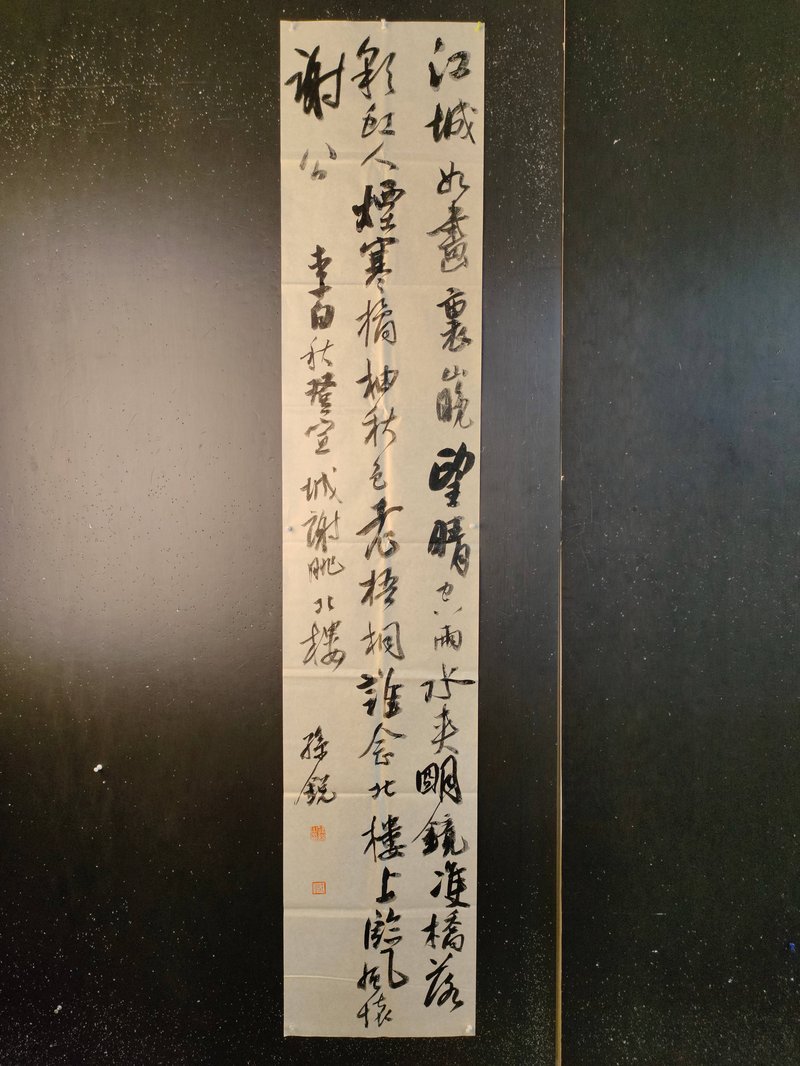 江城如畫裏山晚望晴空兩水夾明鏡雙橋落
彩虹人煙寒橘柚秋色老梧桐誰念北樓上臨風懷
謝公 李白秋登宣城謝朓北樓 孫銳